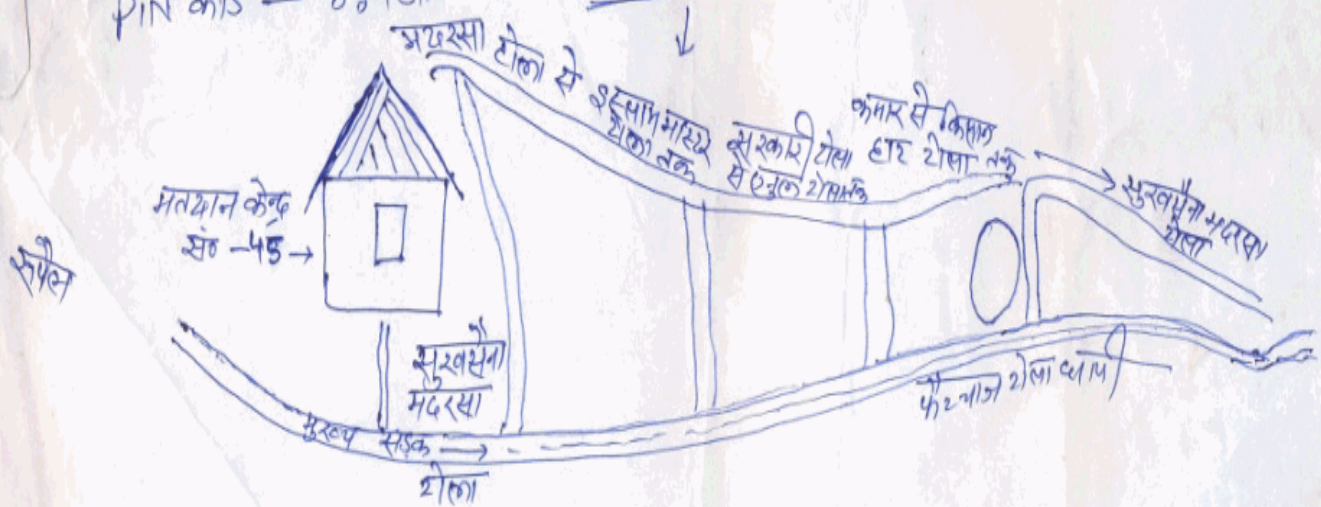 PIN कोड
मदरसा टोला से इस्लाम मास्टर
टोला तक
सरकारी टोला
से टोला तक
कमार से किसान
हाट टोला तक
सुखसैना मदरसा
टोला
मतदान केन्द्र
सं० -45 →
सुखसैना
मदरसा
मुख्य सड़क →
टोला
टोला